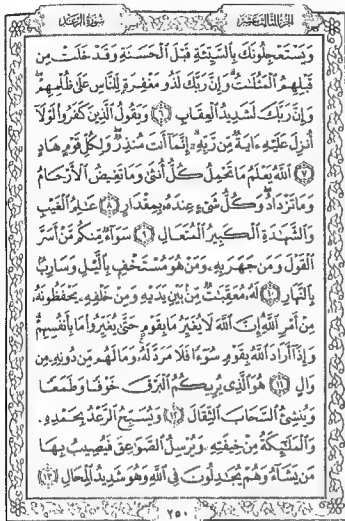 الجزء الثالث عشر
سورة الرعد
وَيَسْتَعْجِلُونَكَ بِالسَّيِّئَةِ قَبْلَ الْحَسَنَةِ وَقَدْ خَلَتْ مِن
قَبْلِهِمُ الْمَثُلَاتُ وَإِنَّ رَبَّكَ لَذُو مَغْفِرَةٍ لِّلنَّاسِ عَلَىٰ ظُلْمِهِمْ
وَإِنَّ رَبَّكَ لَشَدِيدُ الْعِقَابِ ﴿٦﴾ وَيَقُولُ الَّذِينَ كَفَرُوا لَوْلَا
أُنزِلَ عَلَيْهِ ءَايَةٌ مِّن رَّبِّهِ إِنَّمَا أَنتَ مُنذِرٌ وَلِكُلِّ قَوْمٍ هَادٍ
﴿٧﴾ اللَّهُ يَعْلَمُ مَا تَحْمِلُ كُلُّ أُنثَىٰ وَمَا تَغِيضُ الْأَرْحَامُ
وَمَا تَزْدَادُ وَكُلُّ شَيْءٍ عِندَهُ بِمِقْدَارٍ ﴿٨﴾ عَالِمُ الْغَيْبِ
وَالشَّهَادَةِ الْكَبِيرُ الْمُتَعَالِ ﴿٩﴾ سَوَاءٌ مِّنكُم مَّنْ أَسَرَّ
الْقَوْلَ وَمَن جَهَرَ بِهِ وَمَنْ هُوَ مُسْتَخْفٍ بِاللَّيْلِ وَسَارِبٌ
بِالنَّهَارِ ﴿١٠﴾ لَهُ مُعَقِّبَاتٌ مِّن بَيْنِ يَدَيْهِ وَمِنْ خَلْفِهِ يَحْفَظُونَهُ
مِنْ أَمْرِ اللَّهِ إِنَّ اللَّهَ لَا يُغَيِّرُ مَا بِقَوْمٍ حَتَّىٰ يُغَيِّرُوا مَا بِأَنفُسِهِمْ
وَإِذَا أَرَادَ اللَّهُ بِقَوْمٍ سُوءًا فَلَا مَرَدَّ لَهُ وَمَا لَهُم مِّن دُونِهِ مِن
وَالٍ ﴿١١﴾ هُوَ الَّذِي يُرِيكُمُ الْبَرْقَ خَوْفًا وَطَمَعًا
وَيُنشِئُ السَّحَابَ الثِّقَالَ ﴿١٢﴾ وَيُسَبِّحُ الرَّعْدُ بِحَمْدِهِ
وَالْمَلَائِكَةُ مِنْ خِيفَتِهِ وَيُرْسِلُ الصَّوَاعِقَ فَيُصِيبُ بِهَا
مَن يَشَاءُ وَهُمْ يُجَادِلُونَ فِي اللَّهِ وَهُوَ شَدِيدُ الْمِحَالِ ﴿١٣﴾
٢٥٠